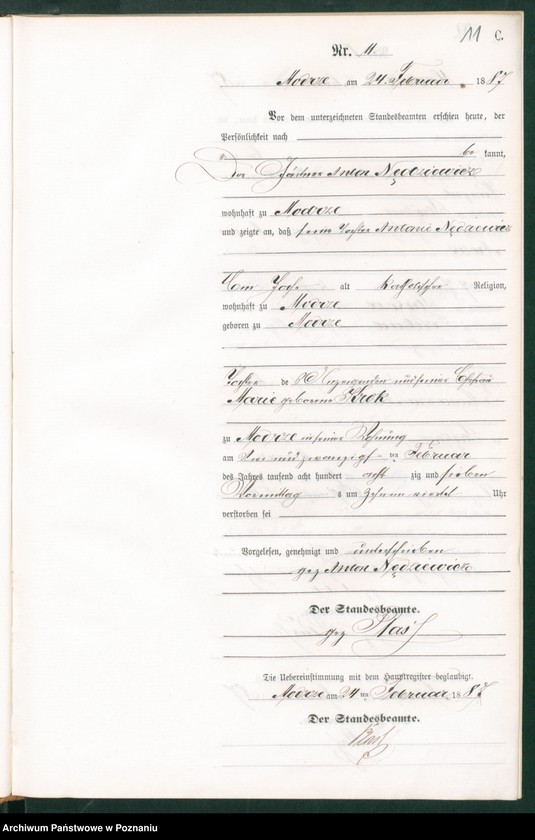 11 C.
Nr. 11.
Modrze am 24. Februar 1887
Vor dem unterzeichneten Standesbeamten erschien heute, der
Persönlichkeit nach
be kannt,
Der Gärtner Anton Nędziewicz
wohnhaft zu Modrze
und zeigte an, daß seine Tochter Antonie Nędziewicz
Ein Jahr alt katholischer Religion,
wohnhaft zu Modrze
geboren zu Modrze
Tochter des Anzeigenden und seiner Ehefrau
Marie geborene Krok
zu Modrze in seiner Wohnung
am drei und zwanzigsten Februar
des Jahres tausend acht hundert acht zig und sieben
Vormittags um zehn Uhr
verstorben sei
Vorgelesen, genehmigt und unterschrieben
gez Anton Nędziewicz
Der Standesbeamte.
gez
Die Uebereinstimmung mit dem Hauptregister beglaubigt.
Modrze am 24 ten Februar 1887
Der Standesbeamte.
Archiwum Państwowe w Poznaniu